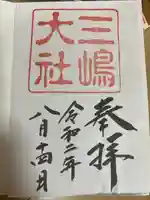 奉拝
三嶋
大社
令和二年
八月十四日